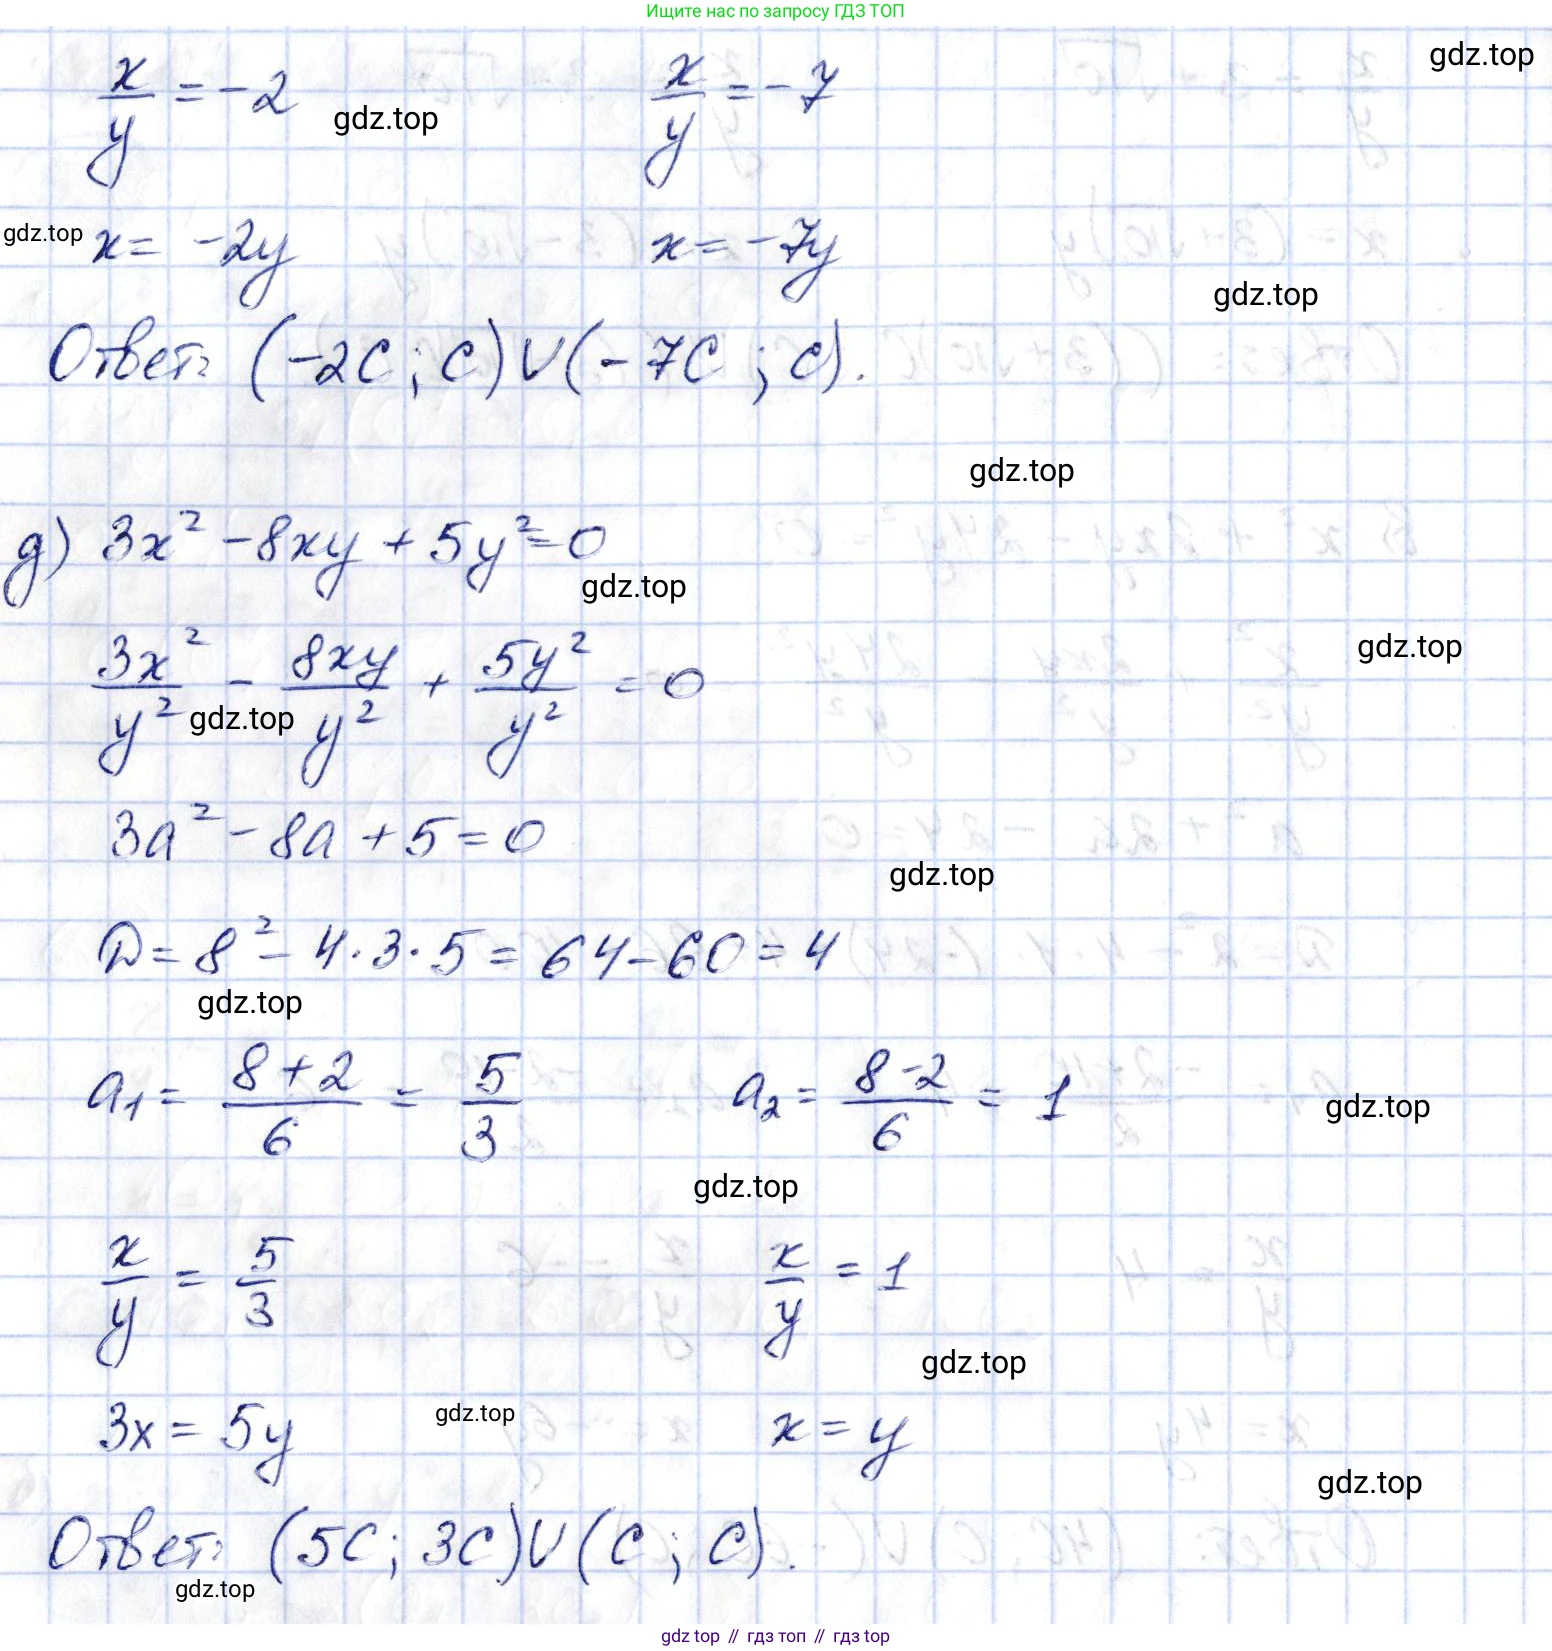 Ищите нас по запросу ГДЗ ТОП
gdz.top
x/y = -2 x/y = -7
gdz.top
gdz.top
x = -2y x = -7y
gdz.top
Ответ: (-2C; C) ∪ (-7C; C).
gdz.top
g) 3x² - 8xy + 5y² = 0
gdz.top
3x²/y² - 8xy/y² + 5y²/y² = 0
gdz.top
gdz.top
3a² - 8a + 5 = 0
gdz.top
D = 8² - 4·3·5 = 64 - 60 = 4
gdz.top
a₁ = (8+2)/6 = 5/3 a₂ = (8-2)/6 = 1
gdz.top
gdz.top
x/y = 5/3 x/y = 1
gdz.top
3x = 5y x = y
gdz.top
gdz.top
Ответ: (5C; 3C) ∪ (C; C).
gdz.top
gdz top // гдз топ // гдз top